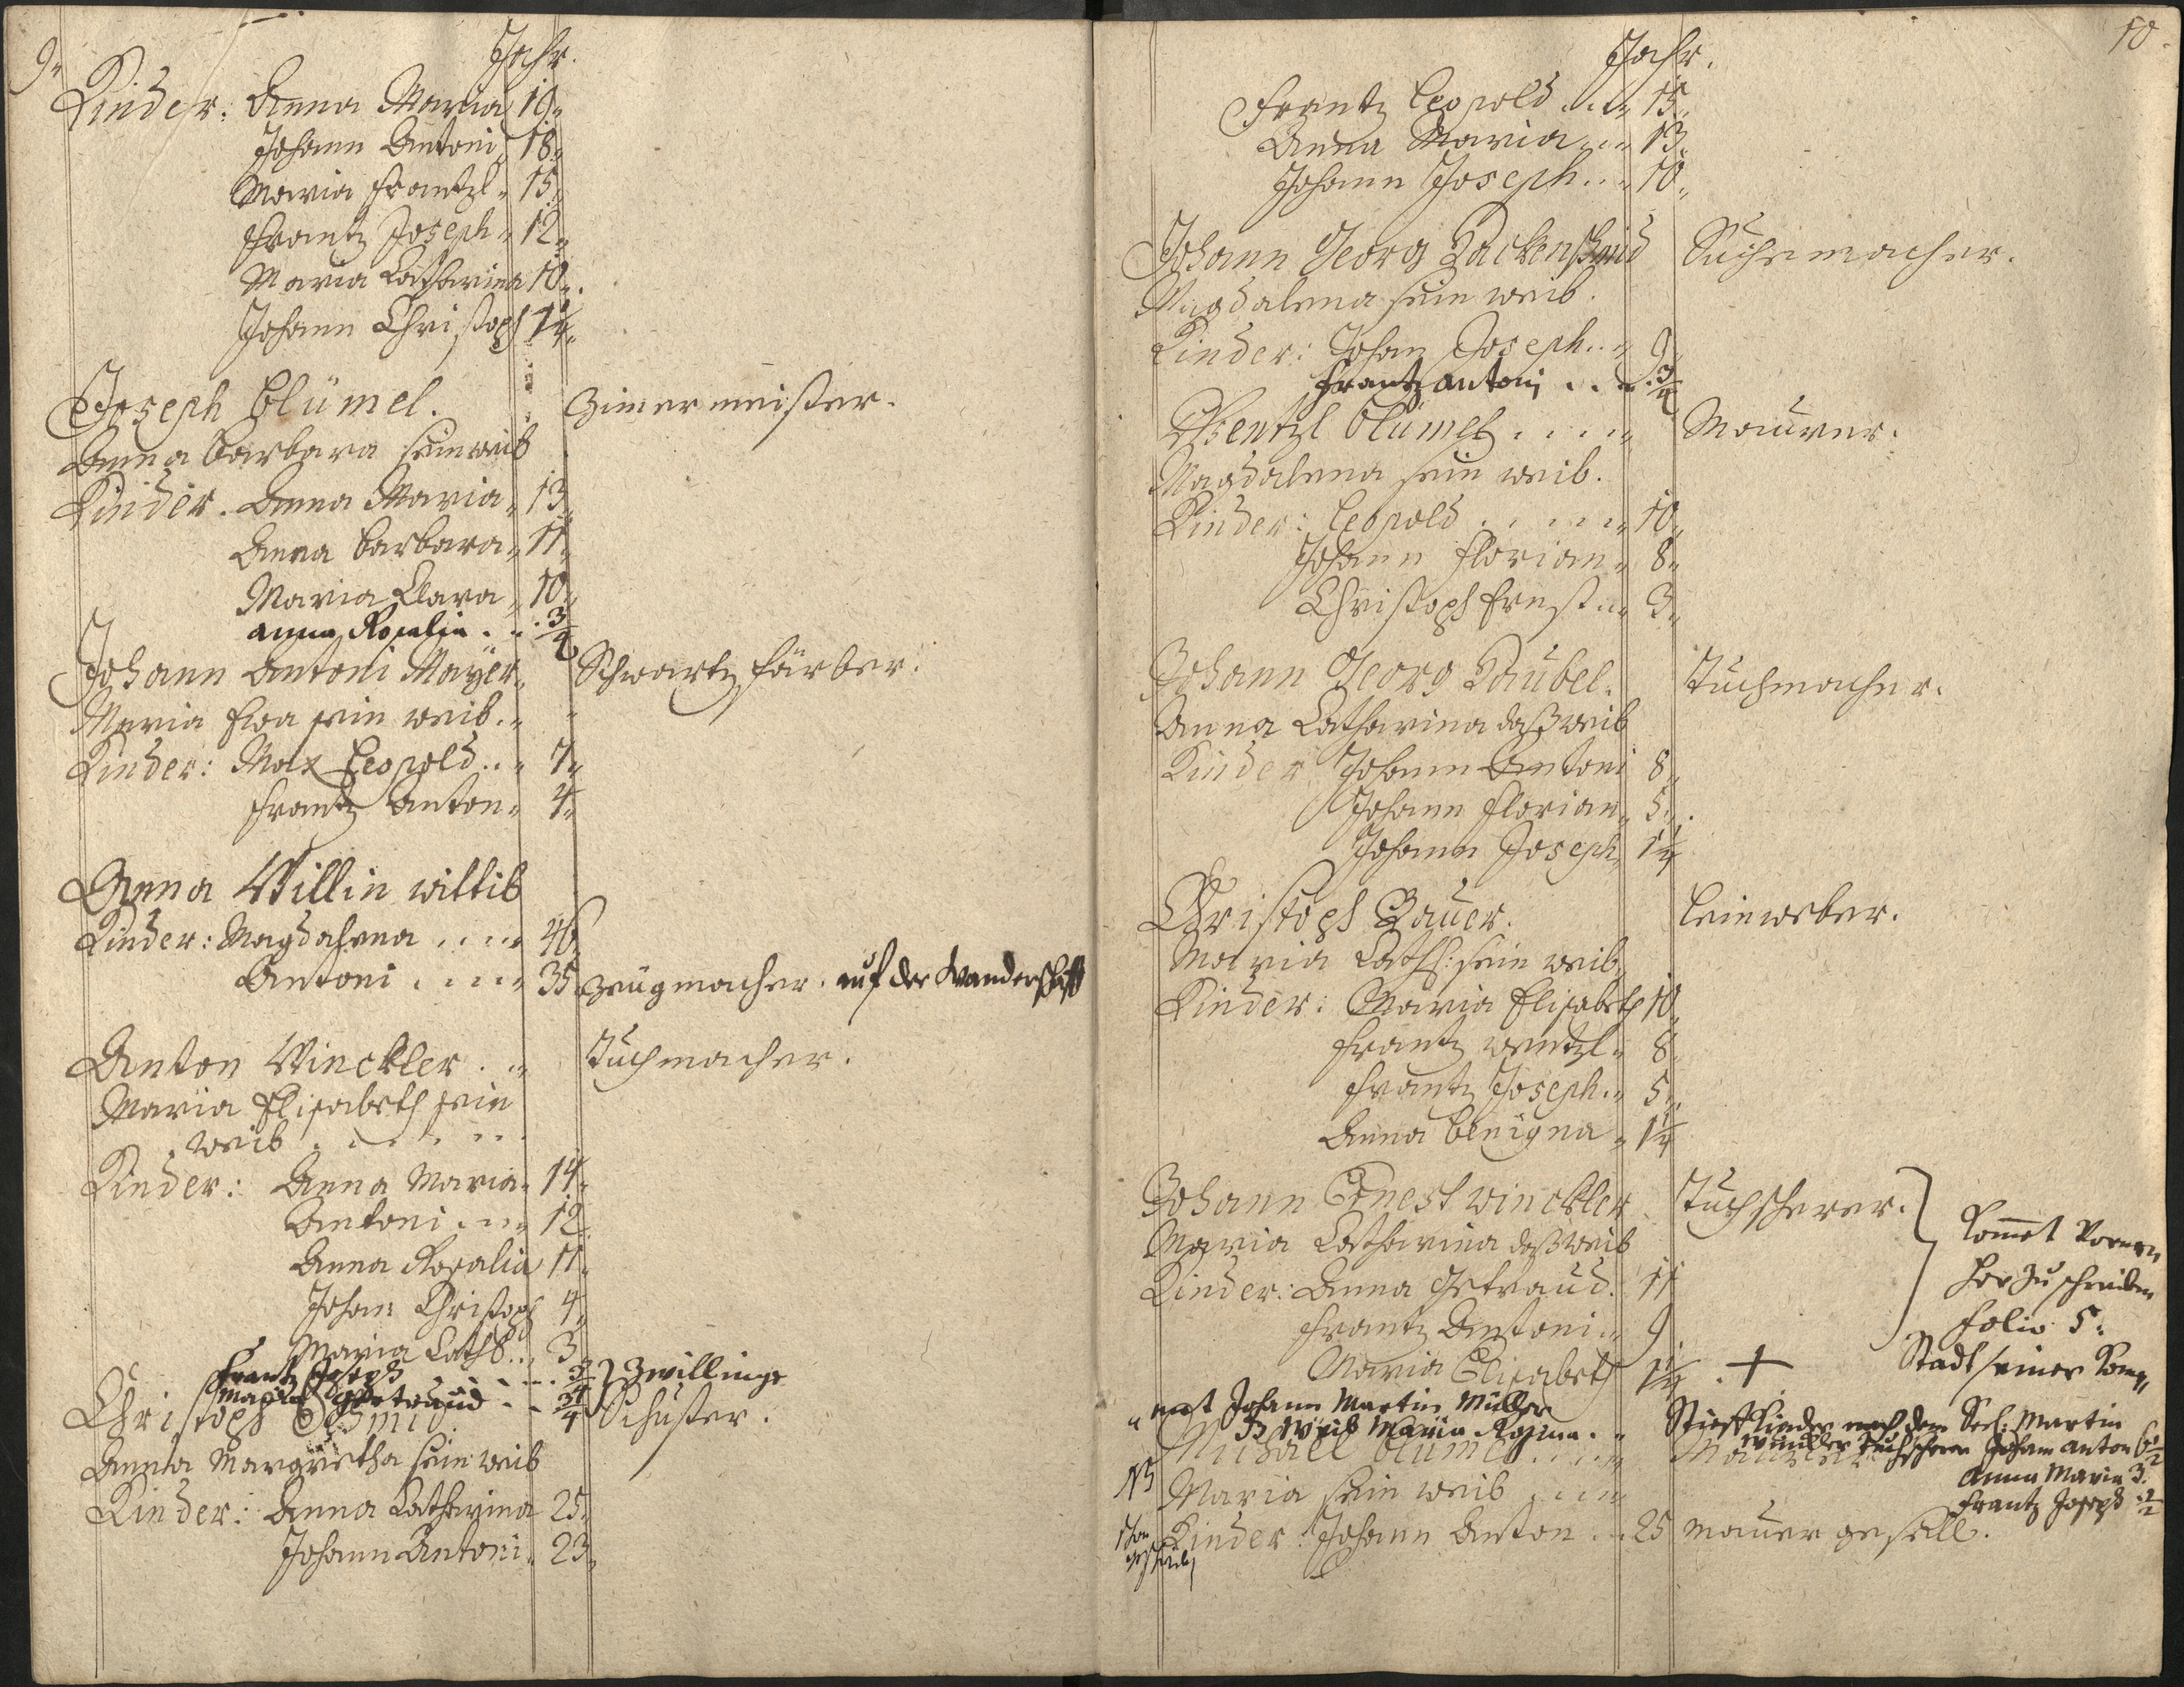 9.
Jahr.
Kinder: Anna Maria 19.
Johann Antoni 18.
Maria Frantzl. 15.
Frantz Joseph. 12.
Maria Catharina 10.
Johann Christoph 1 1/4.
Joseph Blümel. Zimermeister.
Anna Barbara sein weib
Kinder. Anna Maria. 13.
Anna Barbara. 11.
Maria Clara. 10.
anna Rosalia . . . 3/4
Johann Antoni Mayer. Schwartz färber.
Maria Eva sein weib.
Kinder: Max Leopold . . 7.
Frantz Anton. 4.
Anna Willin wittib
Kinder: Magdalena . . . . 40.
Antoni . . . . 35. Zeugmacher. auf der Wanderschafft
Anton Winckler . . Tuchmacher.
Maria Elisabeth sein
weib . . . . . .
Kinder: Anna Maria. 14.
Antoni . . . 12.
Anna Rosalia 11.
Johann Christoph 4.
Maria Cath. . . 3.
Frantz Joseph . . . . 3/4 } Zwillinge
Maria Gertraud . . 3/4
Christoph Schmid. Schuster.
Anna Margaretha sein weib
Kinder: Anna Catharina 25.
Johann Antoni. 23.
10.
Jahr.
Frantz Leopold . . . 15.
Anna Maria . . . 13.
Johann Joseph . . . 10.
Johann Georg Packenschmid Tuchmacher.
Magdalena sein weib.
Kinder: Johan Joseph . . . 9.
Frantz antoni . . . 3/4
Wentzl Blümel . . . . Maurer.
Magdalena sein weib.
Kinder: Leopold . . . . . 10.
Johann Florian. 8.
Christoph Ernst . . 3.
Johann Georg Taubel. Tuchmacher.
Anna Catharina daß weib
Kinder Johann Antoni 8.
Johann Florian. 5.
Johann Joseph. 1 1/4
Christoph Bauer. Leinweber.
Maria Cath: sein weib.
Kinder: Maria Elisabeth 10.
Frantz wentzl. 8.
Frantz Joseph . . 5.
Anna Benigna . 1 1/4
Johann Ernest winckler Tuchscherer. }
Maria Catharina daß weib
Komet Vornen
her zu schreiben
folio 5.
Kinder: Anna Getraud. 11
Frantz Antoni . . 9.
Maria Elisabeth 1 1/4 . + Stadt seiner Kom
Johann Martin Müller
weib Maria Rosina . . Stieff Kinder nach dem Seel: Martin
winckler Tuchscherer Johann anton 6 1/2
Michael Blümel . . . . Maurer
anna Maria 3.
NB Maria sein weib . . . .
Frantz Joseph 1/2
Kinder: Johann Anton . . 25 maurer gesell.